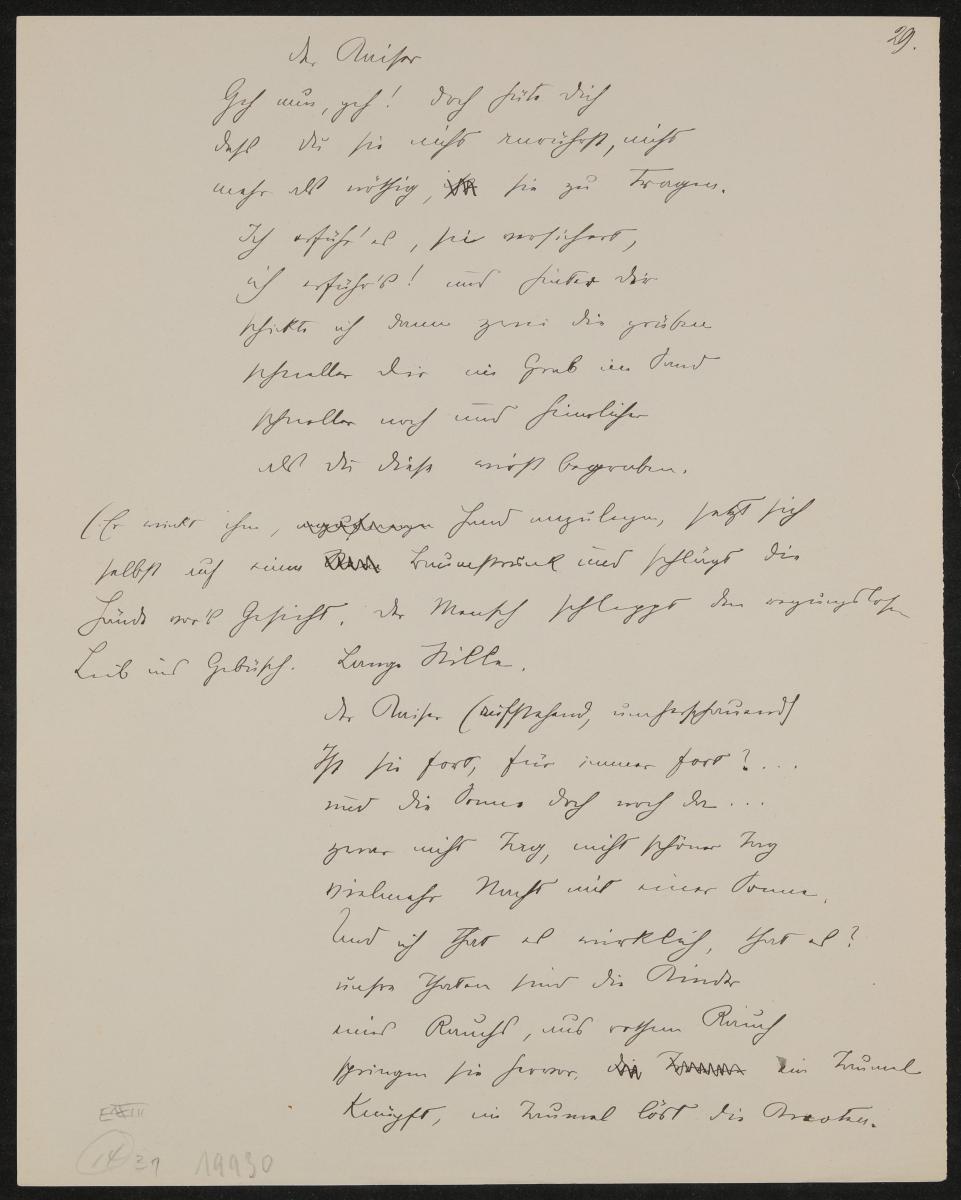 29.
der Kaiser
Geh nun, geh! doch hüte dich
daß du sie nicht anrührst, nicht
mehr als nöthig, sie zu tragen.
Ich erführ' es, sei versichert,
ich erführ's! und hinter dir
schickte ich dann zwei die grüben
schneller dir ein Grab im Sand
schneller noch und heimlicher
als du diese wirst begraben.
(Er winkt ihm, Hand anzulegen, setzt sich
selbst auf einen Baumstrunk und schlägt die
Hände vor's Gesicht. der Mensch schleppt den regungslosen
Leib ins Gebüsch. Lange Stille.
der Kaiser (aufstehend, umherschauend)
Ist sie fort, für immer fort?...
und die Sonne doch noch da...
zwar nicht Tag, nicht schöner Tag
vielmehr Nacht mit einer Sonne.
Und ich that es wirklich, that es?
unsre Thaten sind die Kinder
eines Rauchs, aus rothem Rauch
springen sie hervor, ein Taumel
knüpft, ein Taumel löst die Knoten.
14 31 19930